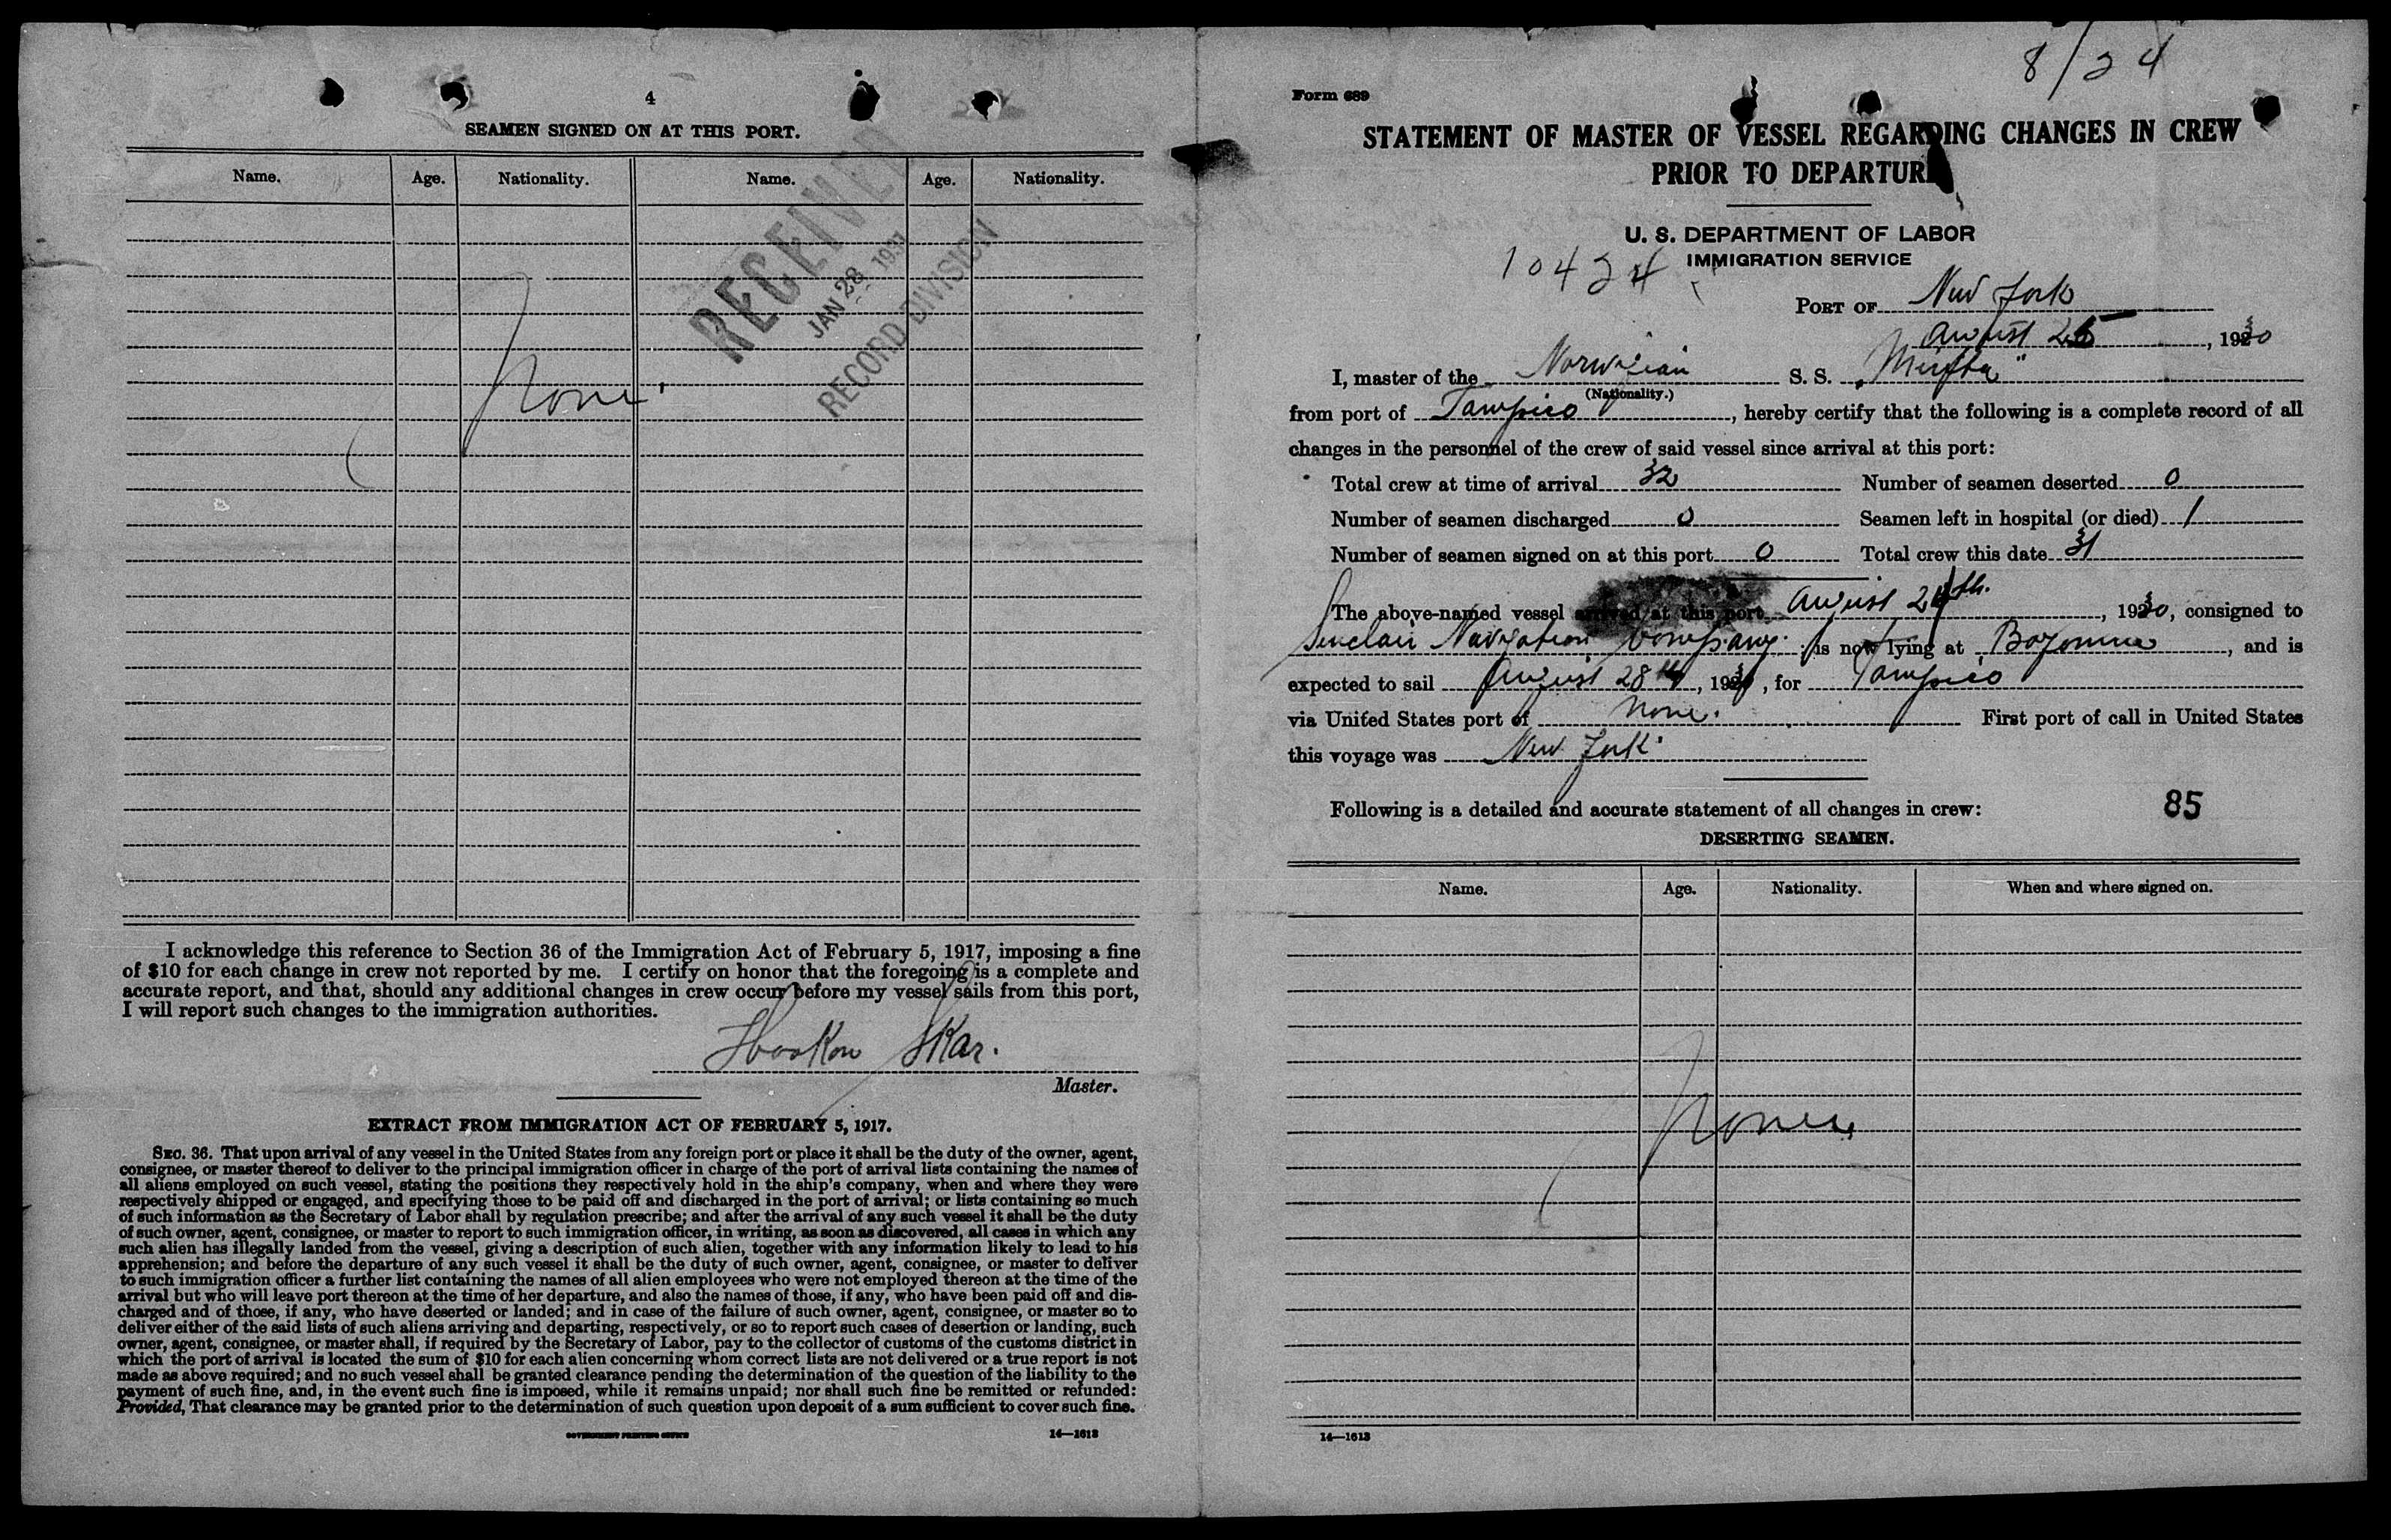 4
SEAMEN SIGNED ON AT THIS PORT.
Name. Age. Nationality. Name. Age. Nationality.
RECEIVED
JAN 28 1931
RECORD DIVISION
None.
I acknowledge this reference to Section 36 of the Immigration Act of February 5, 1917, imposing a fine
of $10 for each change in crew not reported by me. I certify on honor that the foregoing is a complete and
accurate report, and that, should any additional changes in crew occur before my vessel sails from this port,
I will report such changes to the immigration authorities.
Haakon Skar.
Master.
EXTRACT FROM IMMIGRATION ACT OF FEBRUARY 5, 1917.
SEC. 36. That upon arrival of any vessel in the United States from any foreign port or place it shall be the duty of the owner, agent,
consignee, or master thereof to deliver to the principal immigration officer in charge of the port of arrival lists containing the names of
all aliens employed on such vessel, stating the positions they respectively hold in the ship's company, when and where they were
respectively shipped or engaged, and specifying those to be paid off and discharged in the port of arrival; or lists containing so much
of such information as the Secretary of Labor shall by regulation prescribe; and after the arrival of any such vessel it shall be the duty
of such owner, agent, consignee, or master to report to such immigration officer, in writing, as soon as discovered, all cases in which any
such alien has illegally landed from the vessel, giving a description of such alien, together with any information likely to lead to his
apprehension; and before the departure of any such vessel it shall be the duty of such owner, agent, consignee, or master to deliver
to such immigration officer a further list containing the names of all alien employees who were not employed thereon at the time of the
arrival but who will leave port thereon at the time of her departure, and also the names of those, if any, who have been paid off and dis-
charged and of those, if any, who have deserted or landed; and in case of the failure of such owner, agent, consignee, or master so to
deliver either of the said lists of such aliens arriving and departing, respectively, or so to report such cases of desertion or landing, such
owner, agent, consignee, or master shall, if required by the Secretary of Labor, pay to the collector of customs of the customs district in
which the port of arrival is located the sum of $10 for each alien concerning whom correct lists are not delivered or a true report is not
made as above required; and no such vessel shall be granted clearance pending the determination of the question of the liability to the
payment of such fine, and, in the event such fine is imposed, while it remains unpaid; nor shall such fine be remitted or refunded:
Provided, That clearance may be granted prior to the determination of such question upon deposit of a sum sufficient to cover such fine.
GOVERNMENT PRINTING OFFICE 14—1613
8/24
Form 689
STATEMENT OF MASTER OF VESSEL REGARDING CHANGES IN CREW
PRIOR TO DEPARTURE
U. S. DEPARTMENT OF LABOR
IMMIGRATION SERVICE
10424
PORT OF New York
August 25, 1930
I, master of the Norwegian S. S.
(Nationality.)
from port of Tampico, hereby certify that the following is a complete record of all
changes in the personnel of the crew of said vessel since arrival at this port:
Total crew at time of arrival 32 Number of seamen deserted 0
Number of seamen discharged 0 Seamen left in hospital (or died) 1
Number of seamen signed on at this port 0 Total crew this date 31
The above-named vessel arrived at this port August 24th., 1930, consigned to
Sinclair Navigation Company. is now lying at Bayonne, and is
expected to sail August 28th, 1930, for Tampico
via United States port of None. First port of call in United States
this voyage was New York.
Following is a detailed and accurate statement of all changes in crew: 85
DESERTING SEAMEN.
Name. Age. Nationality. When and where signed on.
None.
14—1613